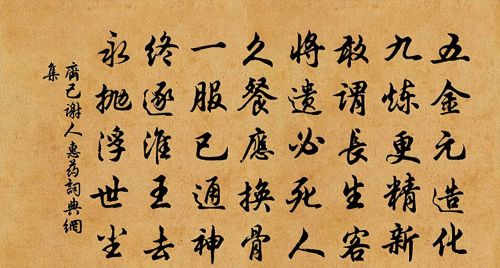 五金元造化
九炼更精新
敢謂長生客
将遺必死人
久餐應換骨
一服已通神
終逐淮王去
永抛浮世尘
齊己谢人惠药詞典網
集